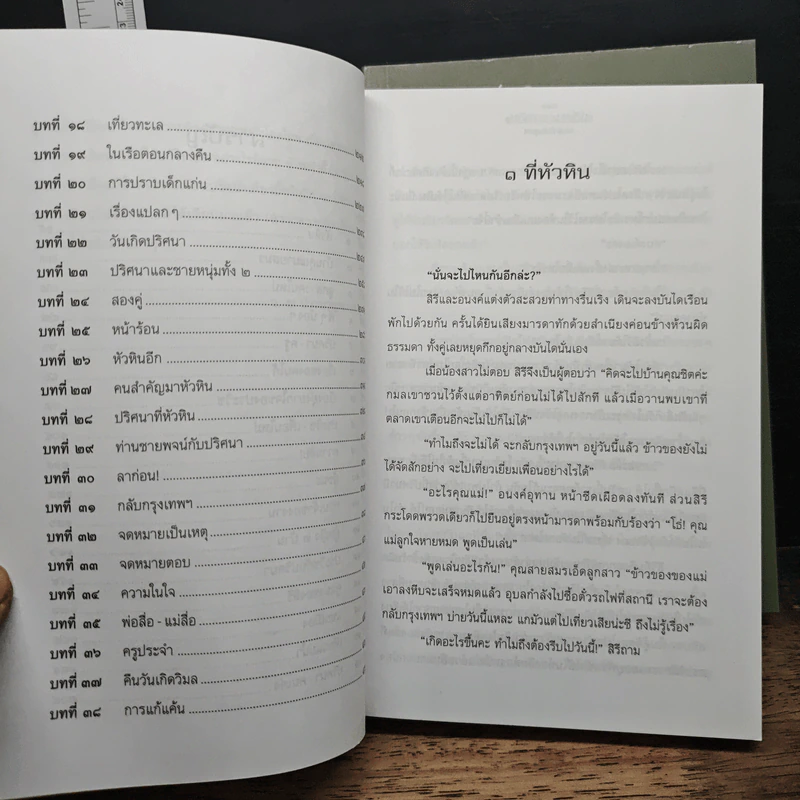 บทที่ ๑๘ เที่ยวทะเล
บทที่ ๑๙ ในเรือตอนกลางคืน
บทที่ ๒๐ การปราบเด็กแก่น
บทที่ ๒๑ เรื่องแปลก ๆ
บทที่ ๒๒ วันเกิดปริศนา
บทที่ ๒๓ ปริศนาและชายหนุ่มทั้ง ๒
บทที่ ๒๔ สองคู่
บทที่ ๒๕ หน้าร้อน
บทที่ ๒๖ หัวหินอีก
บทที่ ๒๗ คนสำคัญมาหัวหิน
บทที่ ๒๘ ปริศนาที่หัวหิน
บทที่ ๒๙ ท่านชายพจน์กับปริศนา
บทที่ ๓๐ ลาก่อน!
บทที่ ๓๑ กลับกรุงเทพฯ
บทที่ ๓๒ จดหมายเป็นเหตุ
บทที่ ๓๓ จดหมายตอบ
บทที่ ๓๔ ความในใจ
บทที่ ๓๕ พ่อสื่อ - แม่สื่อ
บทที่ ๓๖ ครูประจำ
บทที่ ๓๗ คืนวันเกิดวิมล
บทที่ ๓๘ การแก้แค้น
๑ ที่หัวหิน
“นั่นจะไปไหนกันอีกล่ะ?”
สิรีและอนงค์แต่งตัวสะสวยท่าทางรื่นเริง เดินจะลงบันไดเรือน
พักไปด้วยกัน ครั้นได้ยินเสียงมารดาทักด้วยสำเนียงค่อนข้างห้วนผิด
ธรรมดา ทั้งคู่เลยหยุดกึกอยู่กลางบันไดนั่นเอง
เมื่อน้องสาวไม่ตอบ สิรีจึงเป็นผู้ตอบว่า “คิดจะไปบ้านคุณชิตค่ะ
กมลเขาชวนไว้ตั้งแต่อาทิตย์ก่อนไม่ได้ไปสักที แล้วเมื่อวานพบเขาที่
ตลาดเขาเตือนอีกจะไม่ไปก็ไม่ได้”
“ทำไมถึงจะไม่ได้ จะกลับกรุงเทพฯ อยู่วันนี้แล้ว ข้าวของยังไม่
ได้จัดสักอย่าง จะไปเที่ยวเยี่ยมเพื่อนอย่างไรได้”
“อะไรคุณแม่!” อนงค์อุทาน หน้าซีดเผือดลงทันที ส่วนสิรี
กระโดดพรวดเดียวก็ไปยืนอยู่ตรงหน้ามารดาพร้อมกับร้องว่า “โธ่! คุณ
แม่ลูกใจหายหมด พูดเป็นเล่น”
“พูดเล่นอะไรกัน!” คุณสายสมรเอ็ดลูกสาว “ข้าวของของแม่
เอาลงหีบจะเสร็จหมดแล้ว อุบลกำลังไปซื้อตั๋วรถไฟที่สถานี เราจะต้อง
กลับกรุงเทพฯ บ่ายวันนี้แหละ แกมัวแต่ไปเที่ยวเสียน่ะซี ถึงไม่รู้เรื่อง”
“เกิดอะไรขึ้นคะ ทำไมถึงต้องรีบไปวันนี้!” สิรีถาม